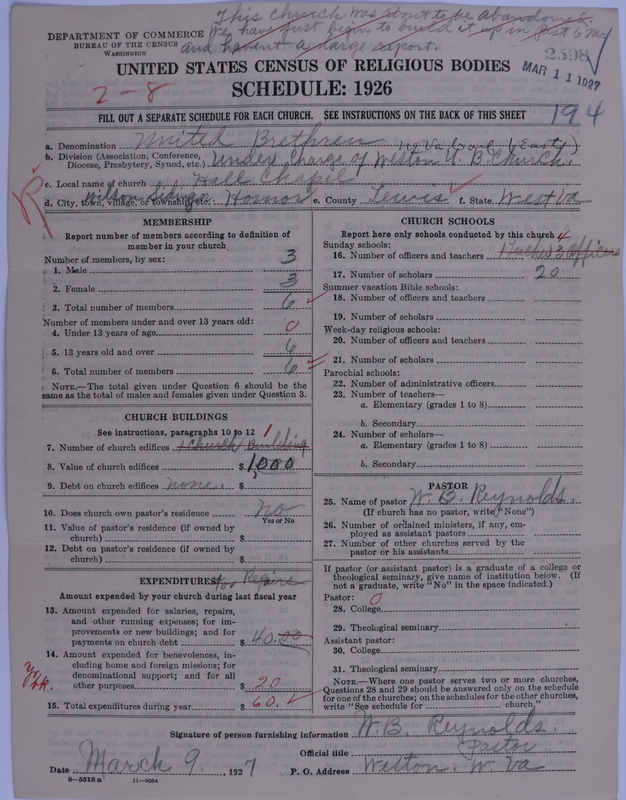 This Church was about to be abandoned.
We have just begun to build it up in past 6 mo
and havent a large report.
DEPARTMENT OF COMMERCE
BUREAU OF THE CENSUS
WASHINGTON
2598
MAR 11 1927
UNITED STATES CENSUS OF RELIGIOUS BODIES
SCHEDULE: 1926
2-8
194
FILL OUT A SEPARATE SCHEDULE FOR EACH CHURCH. SEE INSTRUCTIONS ON THE BACK OF THIS SHEET
a. Denomination United Brethren
b. Division (Association, Conference, Diocese, Presbytery, Synod, etc.) Under Charge of Weston U. B. Church.
c. Local name of church Hall Chapel
Wilson Siding
d. City, town, village, or township, etc. Homor e. County Lewis f. State West Va
MEMBERSHIP
Report number of members according to definition of
member in your church
Number of members, by sex:
1. Male 3
2. Female 3
3. Total number of members 6
Number of members under and over 13 years old:
4. Under 13 years of age 0
5. 13 years old and over 6
6. Total number of members 6
NOTE.—The total given under Question 6 should be the
same as the total of males and females given under Question 3.
CHURCH BUILDINGS
See instructions, paragraphs 10 to 12
7. Number of church edifices 1 Church Building 1
8. Value of church edifices $ 1,000
9. Debt on church edifices none. $
10. Does church own pastor's residence no
Yes or No
11. Value of pastor's residence (if owned by
church) $
12. Debt on pastor's residence (if owned by
church) $
EXPENDITURES for Repairs
Amount expended by your church during last fiscal year
13. Amount expended for salaries, repairs,
and other running expenses; for im-
provements or new buildings; and for
payments on church debt $ 40.00
14. Amount expended for benevolences, in-
cluding home and foreign missions; for
denominational support; and for all
other purposes $ 20
15. Total expenditures during year $ 60.
CHURCH SCHOOLS
Report here only schools conducted by this church
Sunday schools: 4
16. Number of officers and teachers 1 Teacher 3 Officers
17. Number of scholars 20
Summer vacation Bible schools:
18. Number of officers and teachers
19. Number of scholars
Week-day religious schools:
20. Number of officers and teachers
21. Number of scholars
Parochial schools:
22. Number of administrative officers
23. Number of teachers—
a. Elementary (grades 1 to 8)
b. Secondary
24. Number of scholars—
a. Elementary (grades 1 to 8)
b. Secondary
PASTOR
25. Name of pastor W. B. Reynolds.
(If church has no pastor, write "None")
26. Number of ordained ministers, if any, em-
ployed as assistant pastors
27. Number of other churches served by the
pastor or his assistants
If pastor (or assistant pastor) is a graduate of a college or
theological seminary, give name of institution below. (If
not a graduate, write "No" in the space indicated.)
Pastor: 0
28. College
29. Theological seminary
Assistant pastor:
30. College
31. Theological seminary
NOTE.—Where one pastor serves two or more churches,
Questions 28 and 29 should be answered only on the schedule
for one of the churches; on the schedules for the other churches,
write "See schedule for church."
Signature of person furnishing information W. B. Reynolds.
Official title Pastor
Date March 9, 1927 P. O. Address Weston, W. Va
8-5518a 11-9554